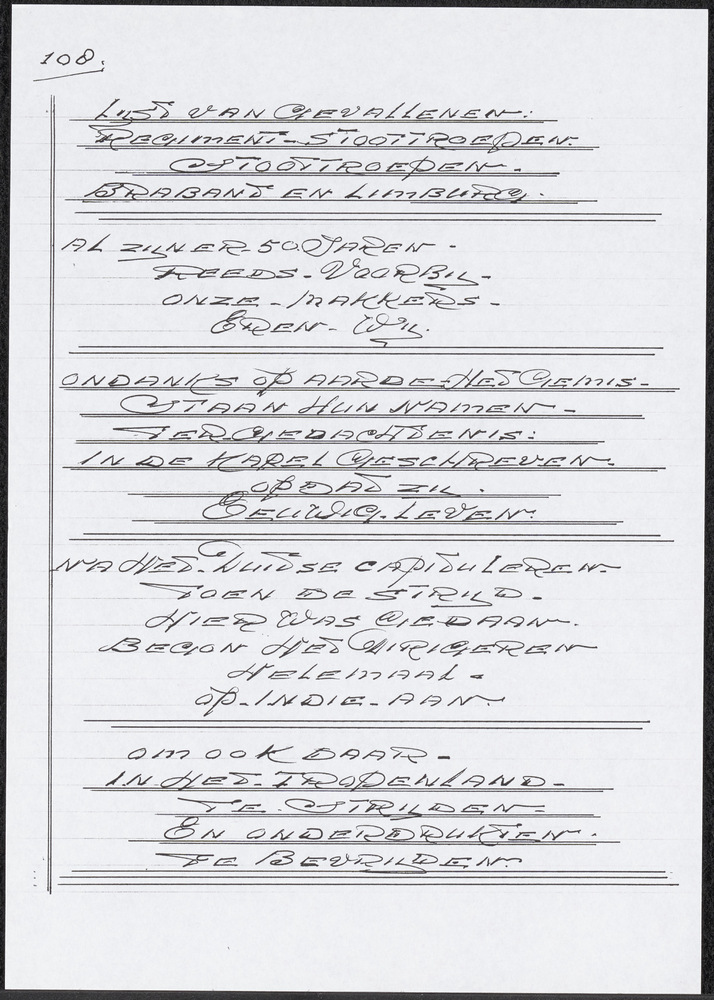 108.
LIJST VAN GEVALLENEN:
REGIMENT-STOOTTROEPEN.
STOOTTROEPEN.
BRABANT EN LIMBURG.
AL ZIJN ER-50 JAREN-
REEDS-VOORBIJ-
ONZE-MAKKERS-
EREN-WIJ.
ONDANKS OP AARDE-HET GEMIS-
STAAN HUN NAMEN-
TER GEDACHTENIS:
IN DE KAPEL GESCHREVEN.
OPDAT ZIJ.
EEUWIG.LEVEN.
NA HET.DUITSE CAPITULEREN.
TOEN DE STRIJD.
HIER WAS GEDAAN.
BEGON HET DIRIGEREN
HELEMAAL.
OP-INDIE-AAN.
OM OOK DAAR-
IN.HET-TROPENLAND-
TE.STRIJDEN-
EN ONDERDRUKTEN.
TE BEVRIJDEN.